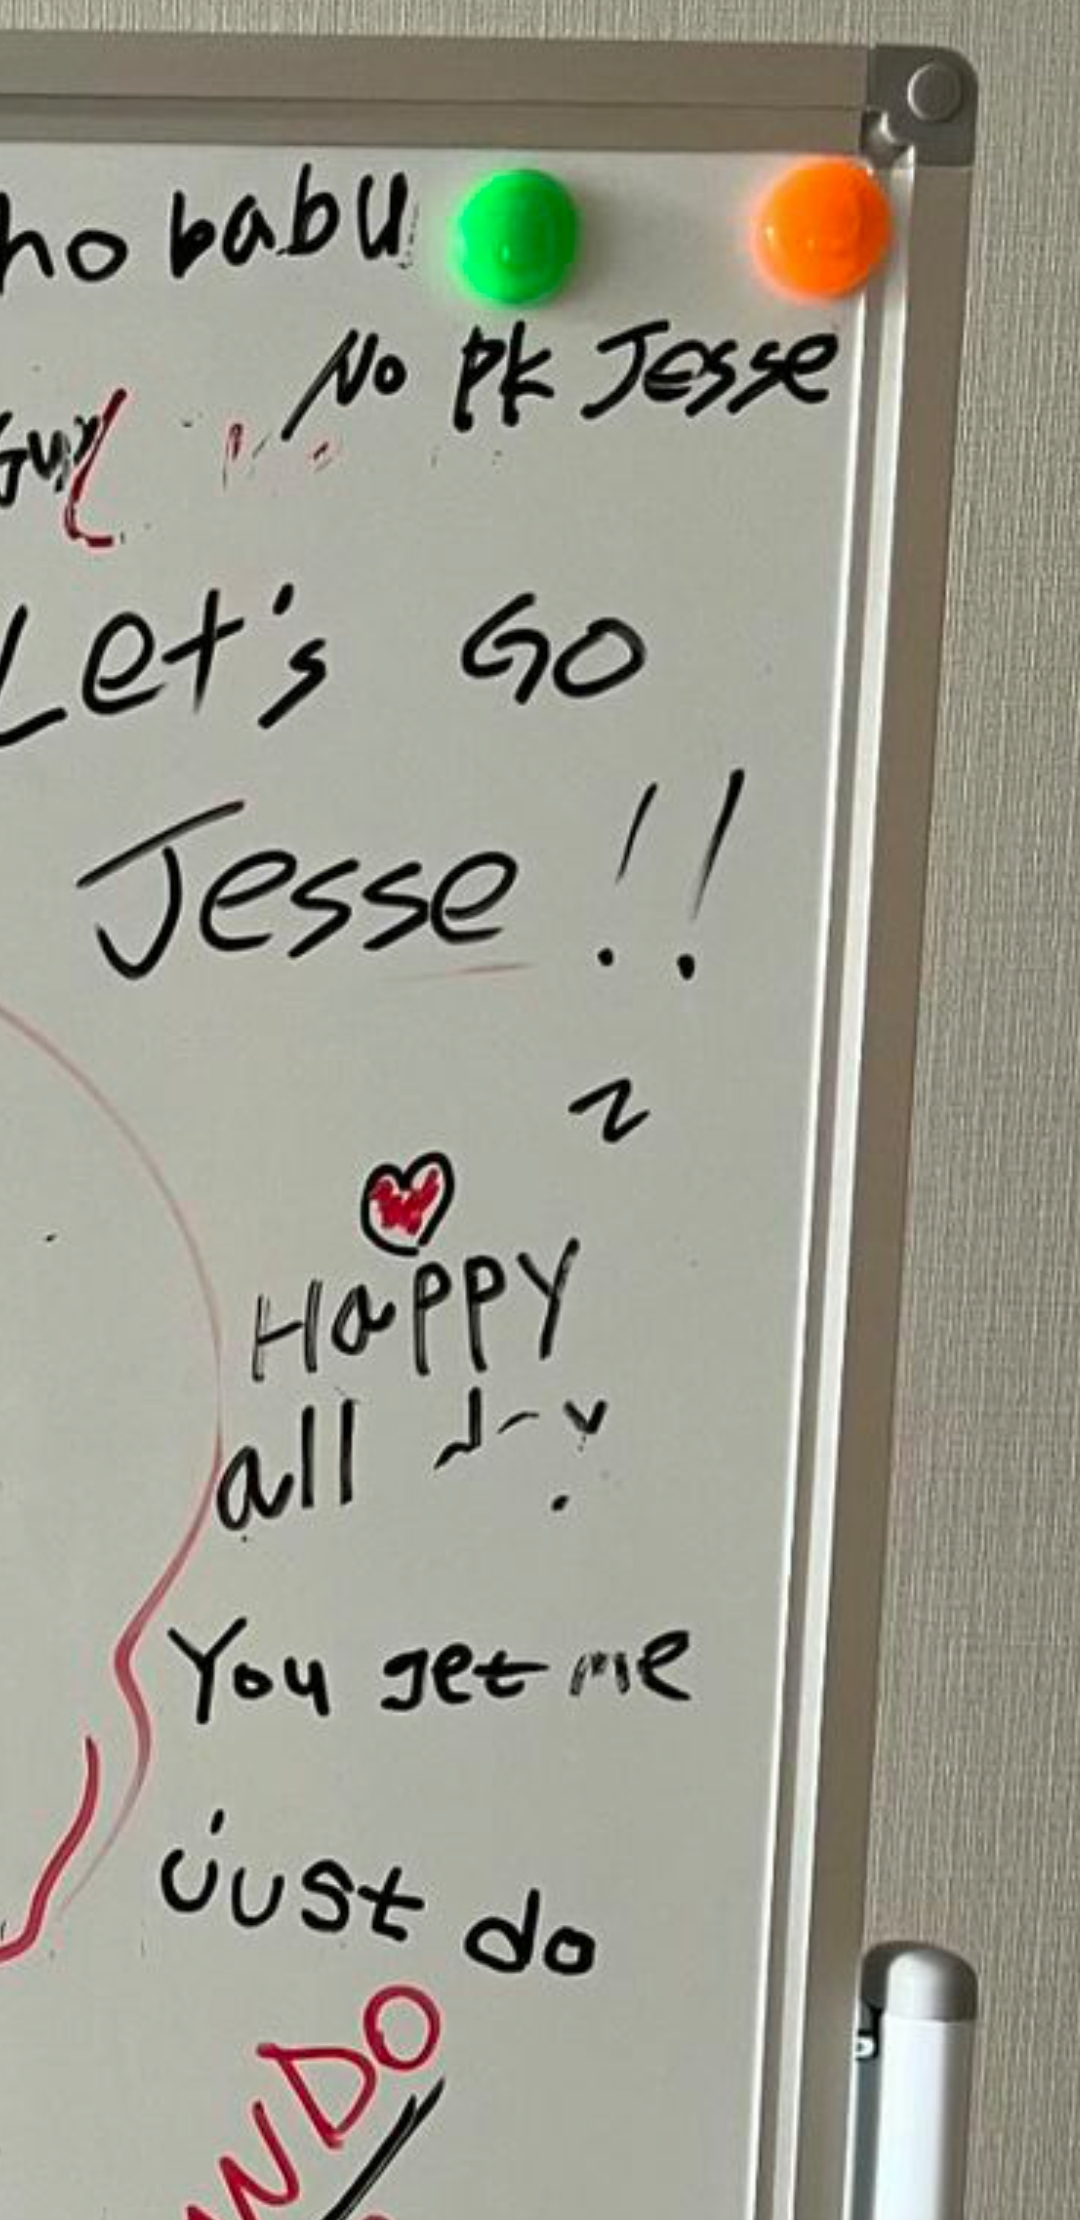 ho babu
No Pk Jesse
Guy
Let's Go
Jesse !!
Happy
all
You get me
just do
NDO